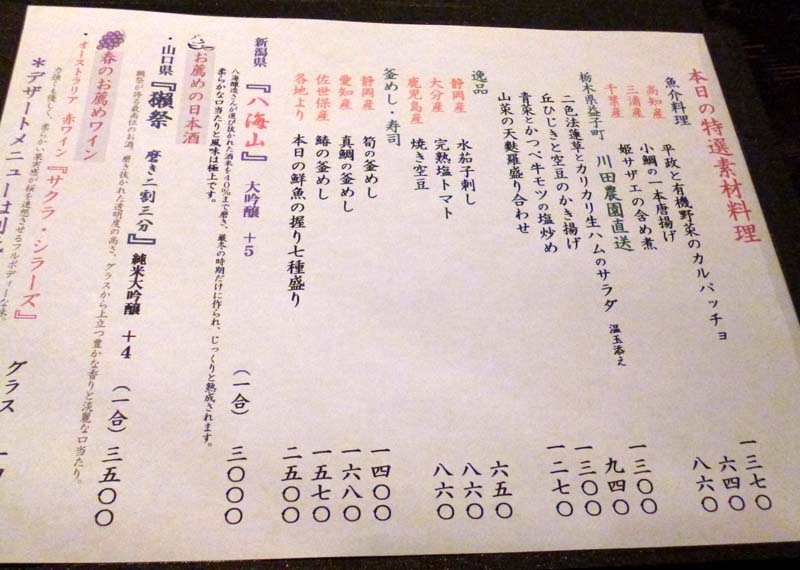 本日の特選素材料理
魚介料理
高知産 平政と有機野菜のカルパッチョ 一三七〇
三浦産 小鯛の一本唐揚げ 六四〇
千葉産 姫サザエの含め煮 八六〇
栃木県益子町 川田農園直送
二色法蓮草とカリカリ生ハムのサラダ 温玉添え 一三〇〇
丘ひじきと空豆のかき揚げ 九四〇
青菜とかつべ牛モツの塩炒め 一三〇〇
山菜の天麩羅盛り合わせ 一二七〇
逸品
静岡産 水茄子刺し 六五〇
大分産 完熟塩トマト 八六〇
鹿児島産 焼き空豆 八六〇
釜めし・寿司
静岡産 筍の釜めし 一四〇〇
愛知産 真鯛の釜めし 一六八〇
佐世保産 鰆の釜めし 一五七〇
各地より 本日の鮮魚の握り七種盛り 二五〇〇
お薦めの日本酒
新潟県 『八海山』 大吟醸 +5 (一合) 三〇〇〇
八海醸造さんが選び抜かれた酒米を40%まで磨き、厳冬の時期だけに作られ、じっくりと熟成されます。
柔らかな口当たりと風味は極上です。
・山口県 『獺祭 磨き二割三分』 純米大吟醸 +4 (一合) 三五〇〇
獺祭が誇る最高位のお酒。磨き抜かれた透明度の高さ、グラスから上立つ豊かな香りと淡麗な口当たり。
春のお薦めワイン
・オーストラリア 赤ワイン 『サクラ・シラーズ』 グラス
力強くも優しく、柔らかい果実感が桜を連想させるフルボディーな味。
*デザートメニューは別